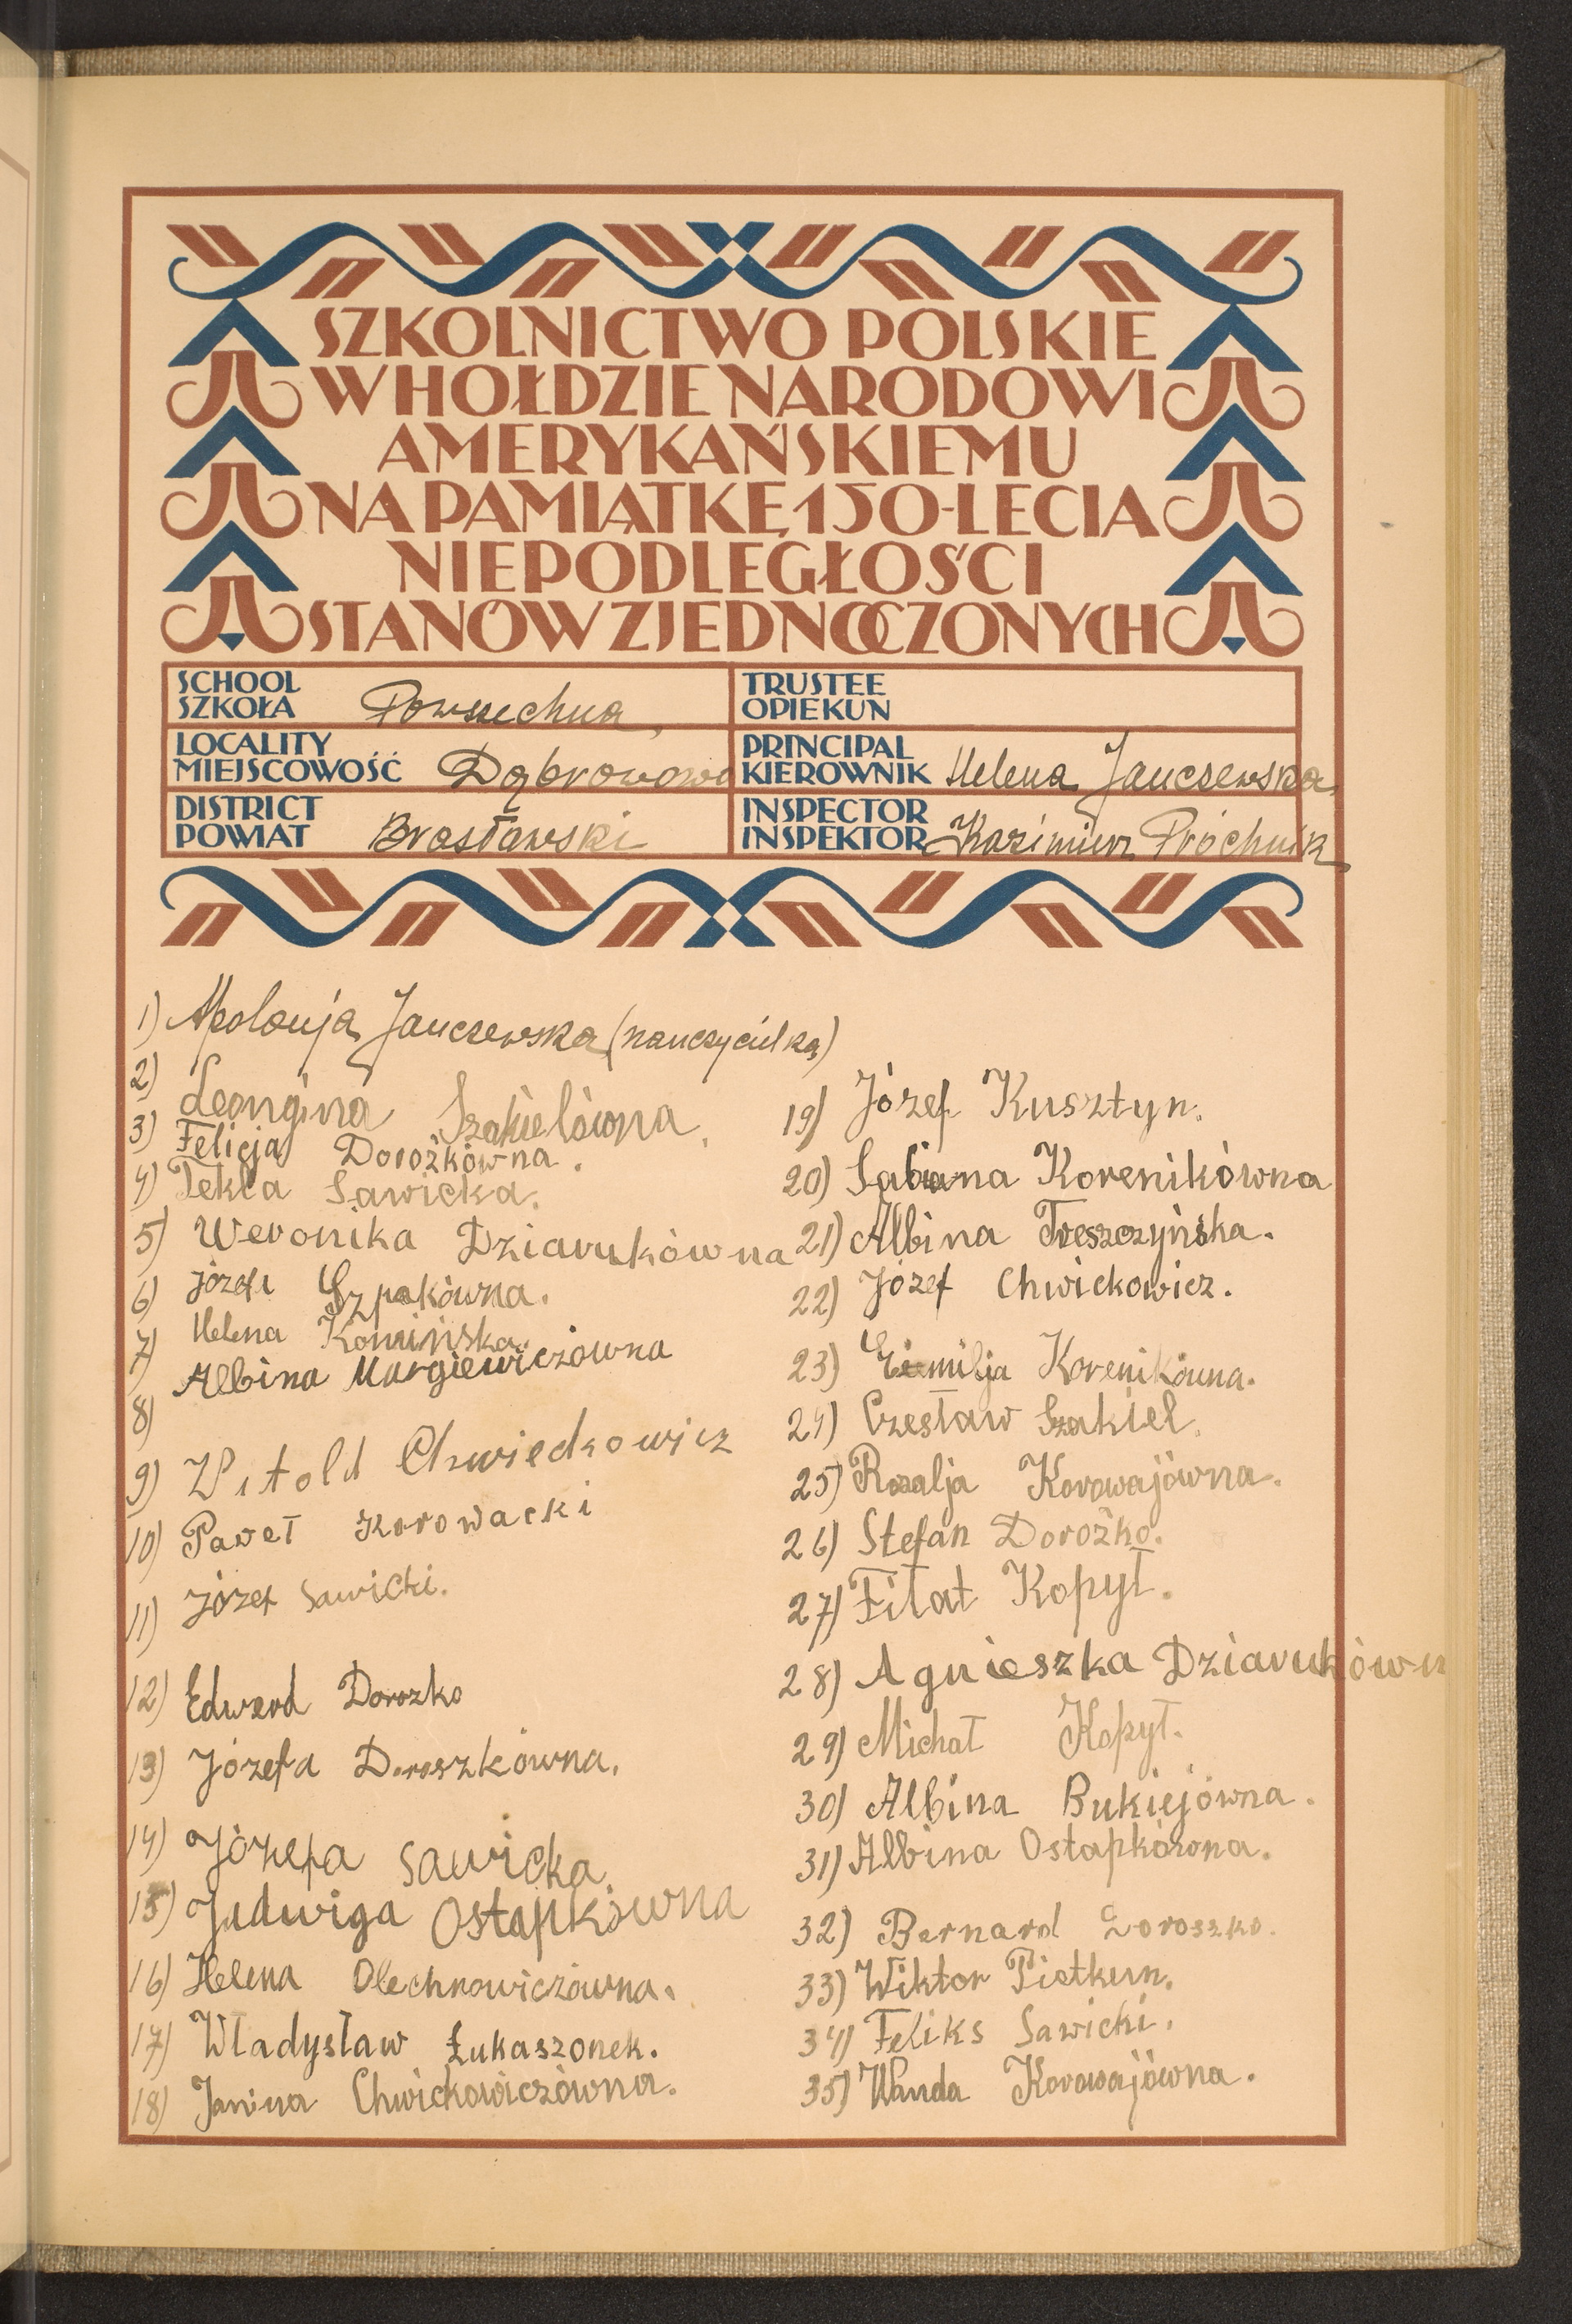 SZKOLNICTWO POLSKIE
W HOŁDZIE NARODOWI
AMERYKAŃSKIEMU
NA PAMIĄTKĘ 150-LECIA
NIEPODLEGŁOŚCI
STANÓW ZJEDNOCZONYCH
SCHOOL
SZKOŁA Powszechna
TRUSTEE
OPIEKUN
LOCALITY
MIEJSCOWOŚĆ Dąbrowowo
PRINCIPAL
KIEROWNIK Helena Janczewska
DISTRICT
POWIAT Brasławski
INSPECTOR
INSPEKTOR Kazimierz Próchnik
1) Apolonja Janczewska (nauczycielka)
2) Leongina Szakielówna.
3) Felicja Dorożkówna.
4) Tekla Sawicka.
5) Weronika Dziarukówna
6) Józefa Szpakówna.
7) Helena Komińska.
8) Albina Margiewiczówna
9) Witold Chwiedkowicz
10) Paweł Korowacki
11) Józef Sawicki.
12) Edward Dorozko
13) Józefa Doroszkówna.
14) Józefa Sawicka.
15) Jadwiga Ostapkówna
16) Helena Olechnowiczówna.
17) Władysław Łukaszonek.
18) Janina Chwickowiczówna.
19) Józef Kusztyn.
20) Sabina Korenikówna
21) Albina Treszczyńska.
22) Józef Chwickowicz.
23) Emilja Korenikówna.
24) Czesław Szakiel.
25) Rozalja Korowajówna.
26) Stefan Dorożko.
27) Fiłat Kopył.
28) Agnieszka Dziarukówn
29) Michał Kopył.
30) Albina Bukiejówna.
31) Albina Ostapkówna.
32) Bernard Doroszko.
33) Wiktor Pietkun.
34) Feliks Sawicki.
35) Wanda Korowajówna.